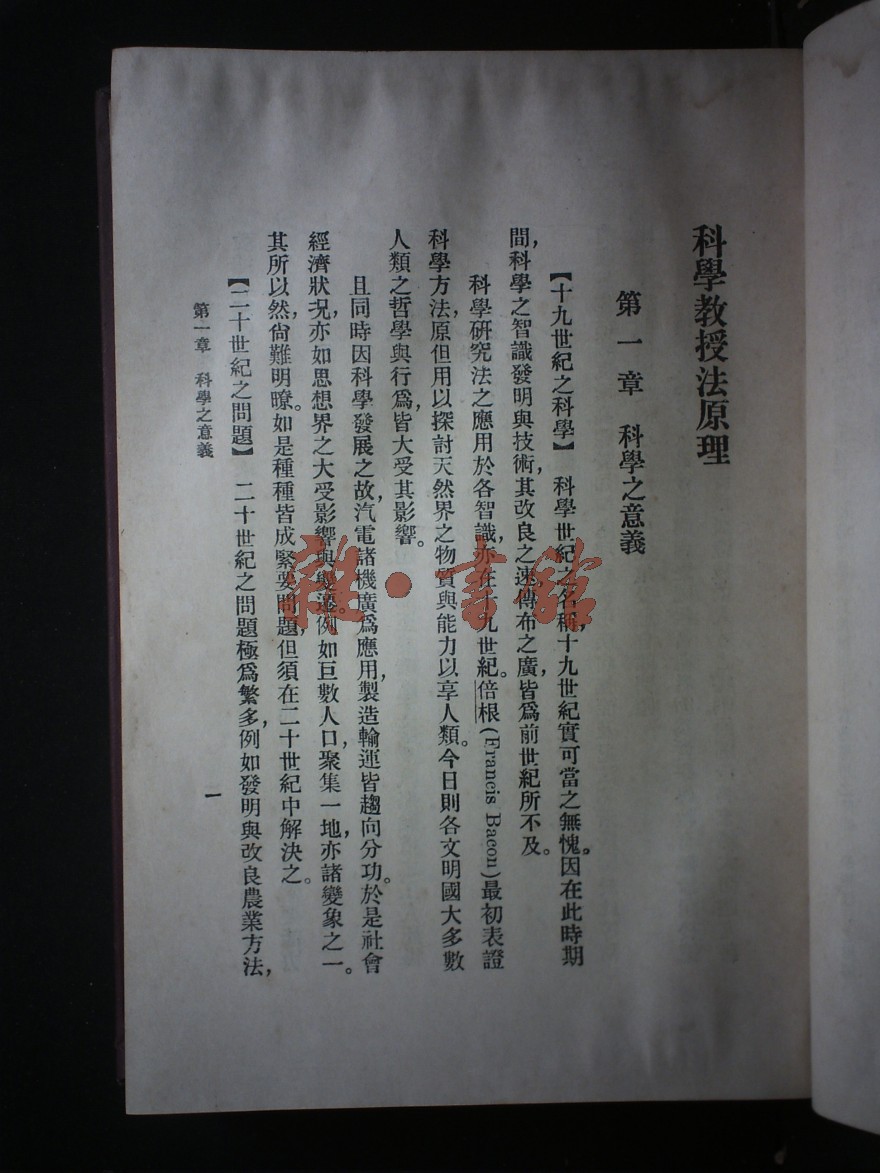 科學教授法原理
第一章　科學之意義
【十九世紀之科學】　科學世紀之名稱，十九世紀實可當之無愧。因在此時期
間，科學之智識發明與技術，其改良之速，傳布之廣，皆爲前世紀所不及。
科學硏究法之應用於各智識，亦在十九世紀。倍根(Francis Bacon)最初表證
科學方法，原但用以探討天然界之物質與能力以享人類。今日則各文明國大多數
人類之哲學與行爲，皆大受其影響。
且同時因科學發展之故，汽電諸機廣爲應用，製造輸運皆趨向分功。於是社會
經濟狀況，亦如思想界之大受影響與變遷。例如巨數人口，聚集一地，亦諸變象之一。
其所以然，尙難明瞭。如是種種皆成緊要問題，但須在二十世紀中解決之。
【二十世紀之問題】　二十世紀之問題極爲繁多，例如發明與改良農業方法，
第一章　科學之意義
一
雜·書館